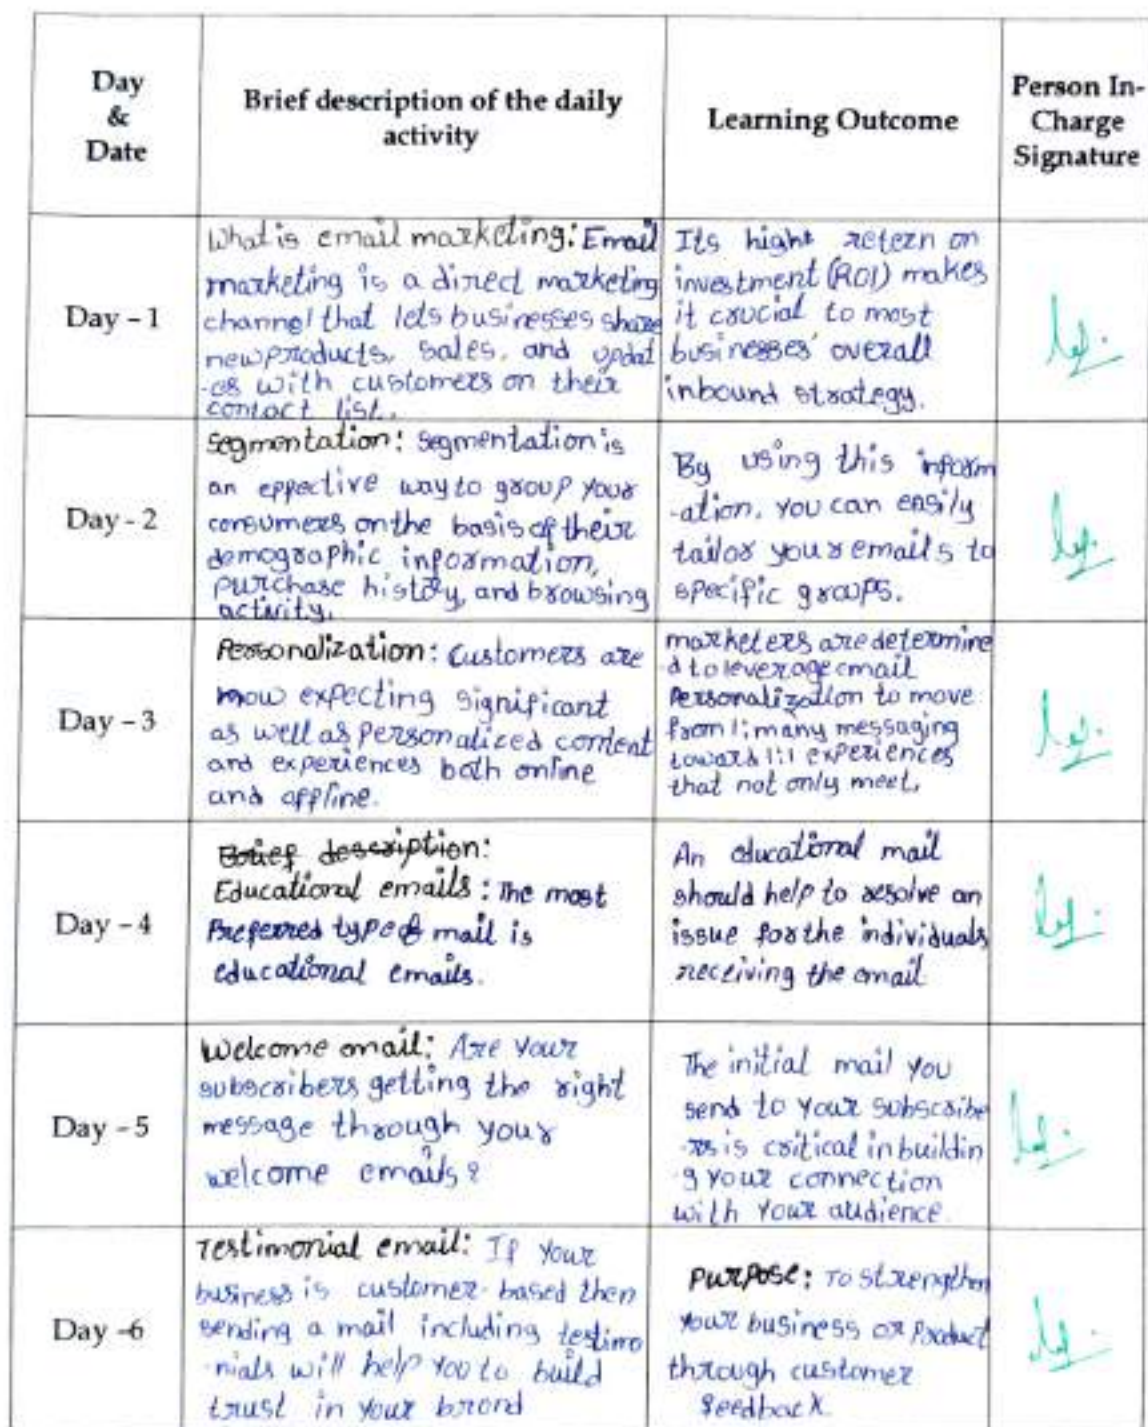 Day
&
Date
Brief description of the daily
activity
Learning Outcome
Person In-
Charge
Signature
Day – 1
What is email marketing: Email
marketing is a direct marketing
channel that lets businesses share
new products, sales, and updat
-es with customers on their
contact list.
Its hight retern on
investment (ROI) makes
it crucial to most
businesses' overall
inbound strategy.
Day - 2
Segmentation: segmentation is
an effective way to group your
consumers on the basis of their
demographic information,
purchase history, and browsing
activity.
By using this inform
-ation, you can easily
tailor your emails to
specific groups.
Day – 3
Personalization: Customers are
now expecting significant
as well as personalized content
and experiences both online
and offline.
marketers are determine
d to leverage email
Personalization to move
from 1:many messaging
toward 1:1 experiences
that not only meet.
Day – 4
Brief description:
Educational emails: The most
Preferred type of mail is
educational emails.
An educational mail
should help to resolve an
issue for the individuals
receiving the email
Day – 5
Welcome email: Are your
subscribers getting the right
message through your
welcome emails?
The initial mail you
send to your subscribe
-rs is critical in buildin
-g your connection
with your audience.
Day -6
Testimonial email: If your
business is customer-based then
sending a mail including testimo
-nials will help you to build
trust in your brand
Purpose: To strengthen
your business or Product
through customer
feedback.